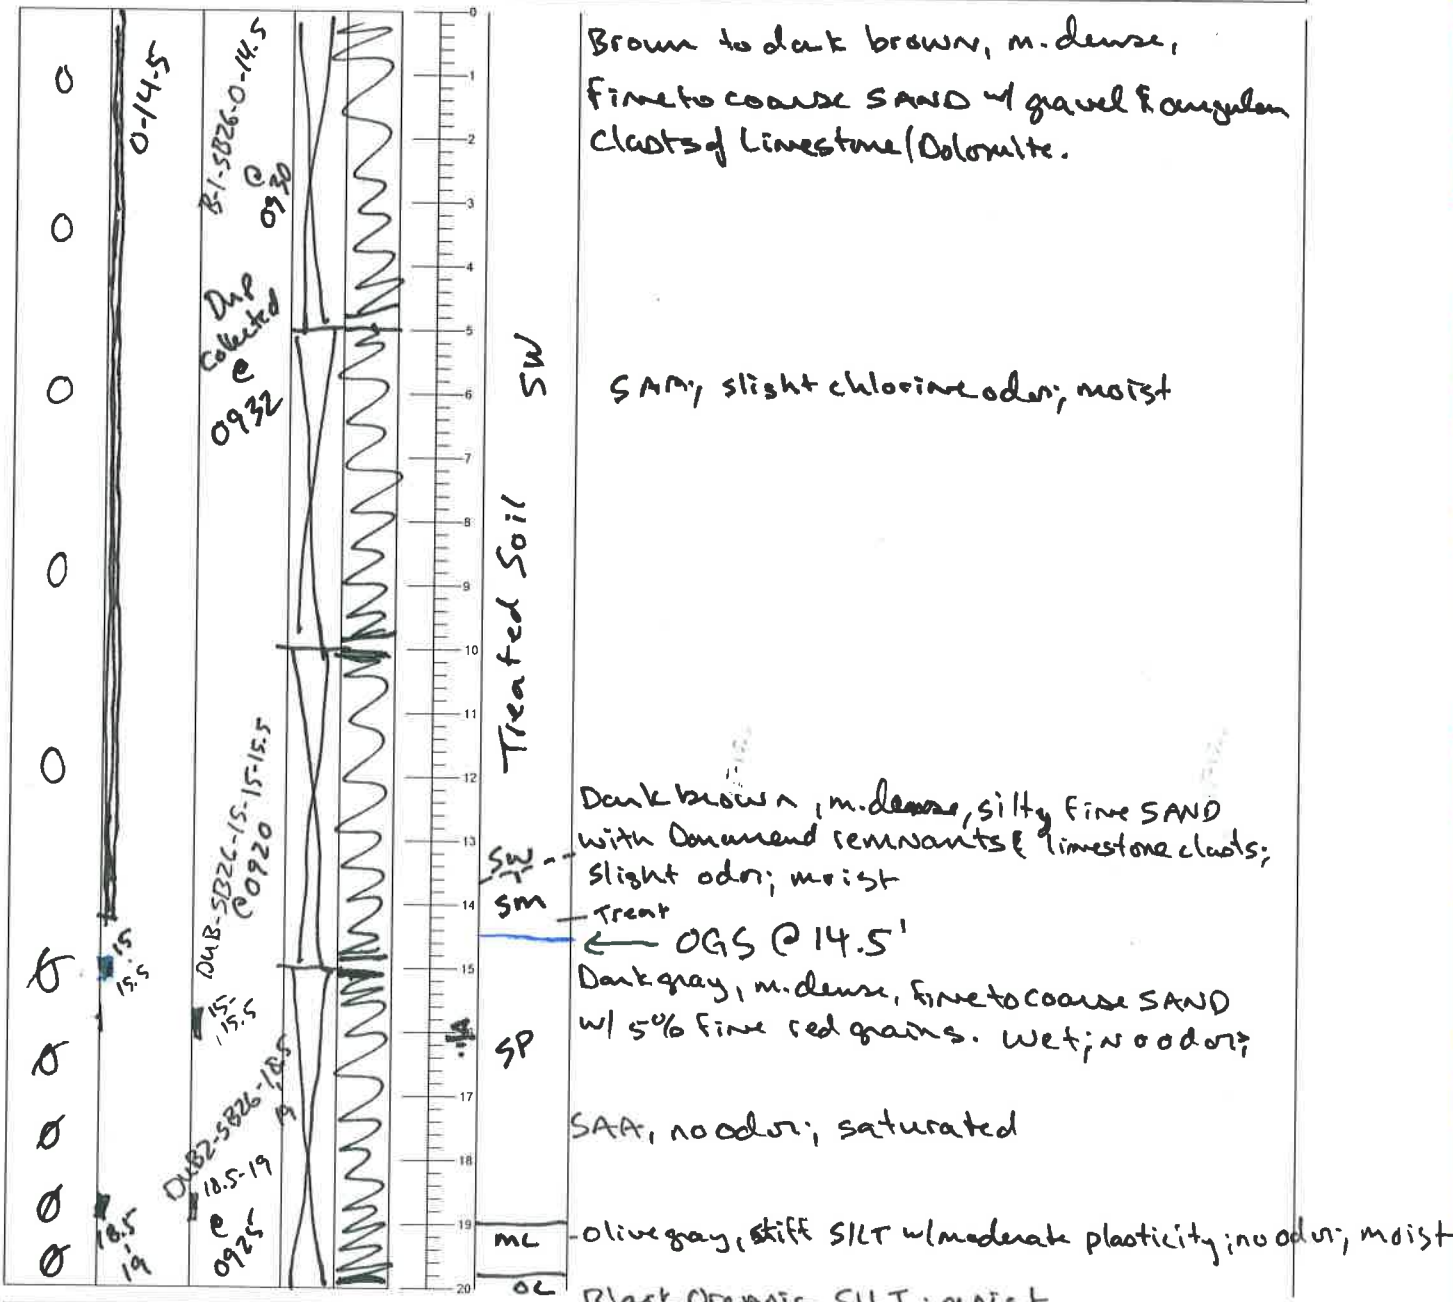 0
0-14.5
B-1-SB26-0-14.5
@
0930
Dup
collected
@
0932
0
0
0
0
DUB-SB26-15-15-15.5
@0920
15-
15.5
15-
15.5
DUB2-SB26-18.5
19
18.5-19
@
0925
18.5
-
19
0
0
0
0
0
0
1
2
3
4
5
6
7
8
9
10
11
12
13
14
15
17
18
19
20
SW
Treated Soil
SW
SM
SP
ML
OL
Brown to dark brown, m. dense,
Fine to coarse SAND w/ gravel & angular
Clasts of Limestone/Dolomite.
SAA; slight chlorine odor; moist
Dark brown, m. dense, silty Fine SAND
with Daramend remnants & limestone clasts;
slight odor; moist
Treat
OGS @ 14.5'
Dark gray, m. dense, fine to coarse SAND
w/ 5% fine red grains. Wet; no odor;
SAA, no odor; saturated
-olive gray, stiff SILT w/ moderate plasticity; no odor; moist
Black Organic SILT; moist